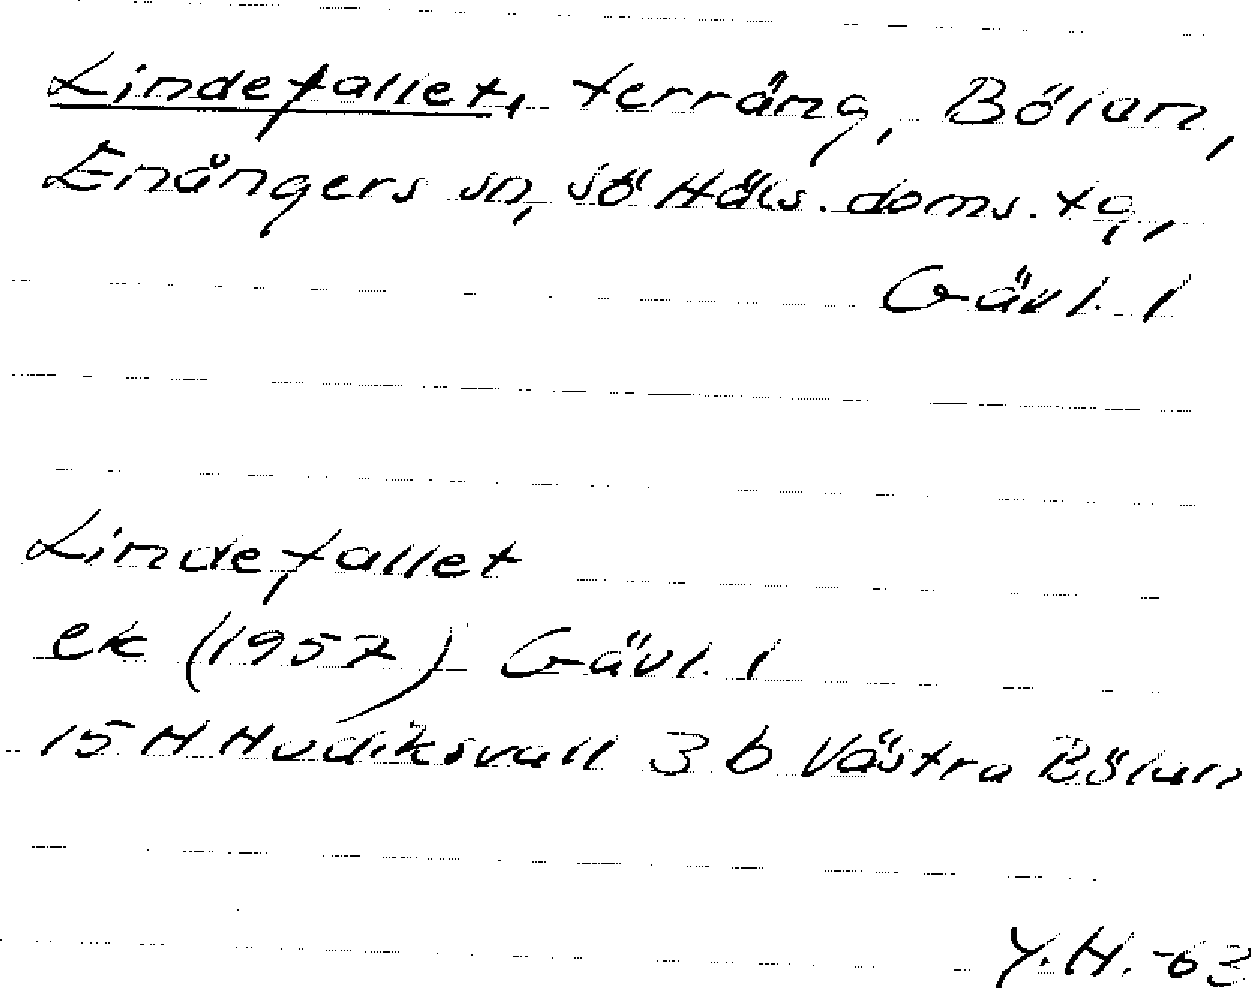 Lindefallet, terräng, Bölan,
Enångers sn, Sö Häls. doms. tg,
Gävl. l
Lindefallet
ek (1957) Gävl. l
15 H Hudiksvall 3 b Västra Bölan
Y.H.-63